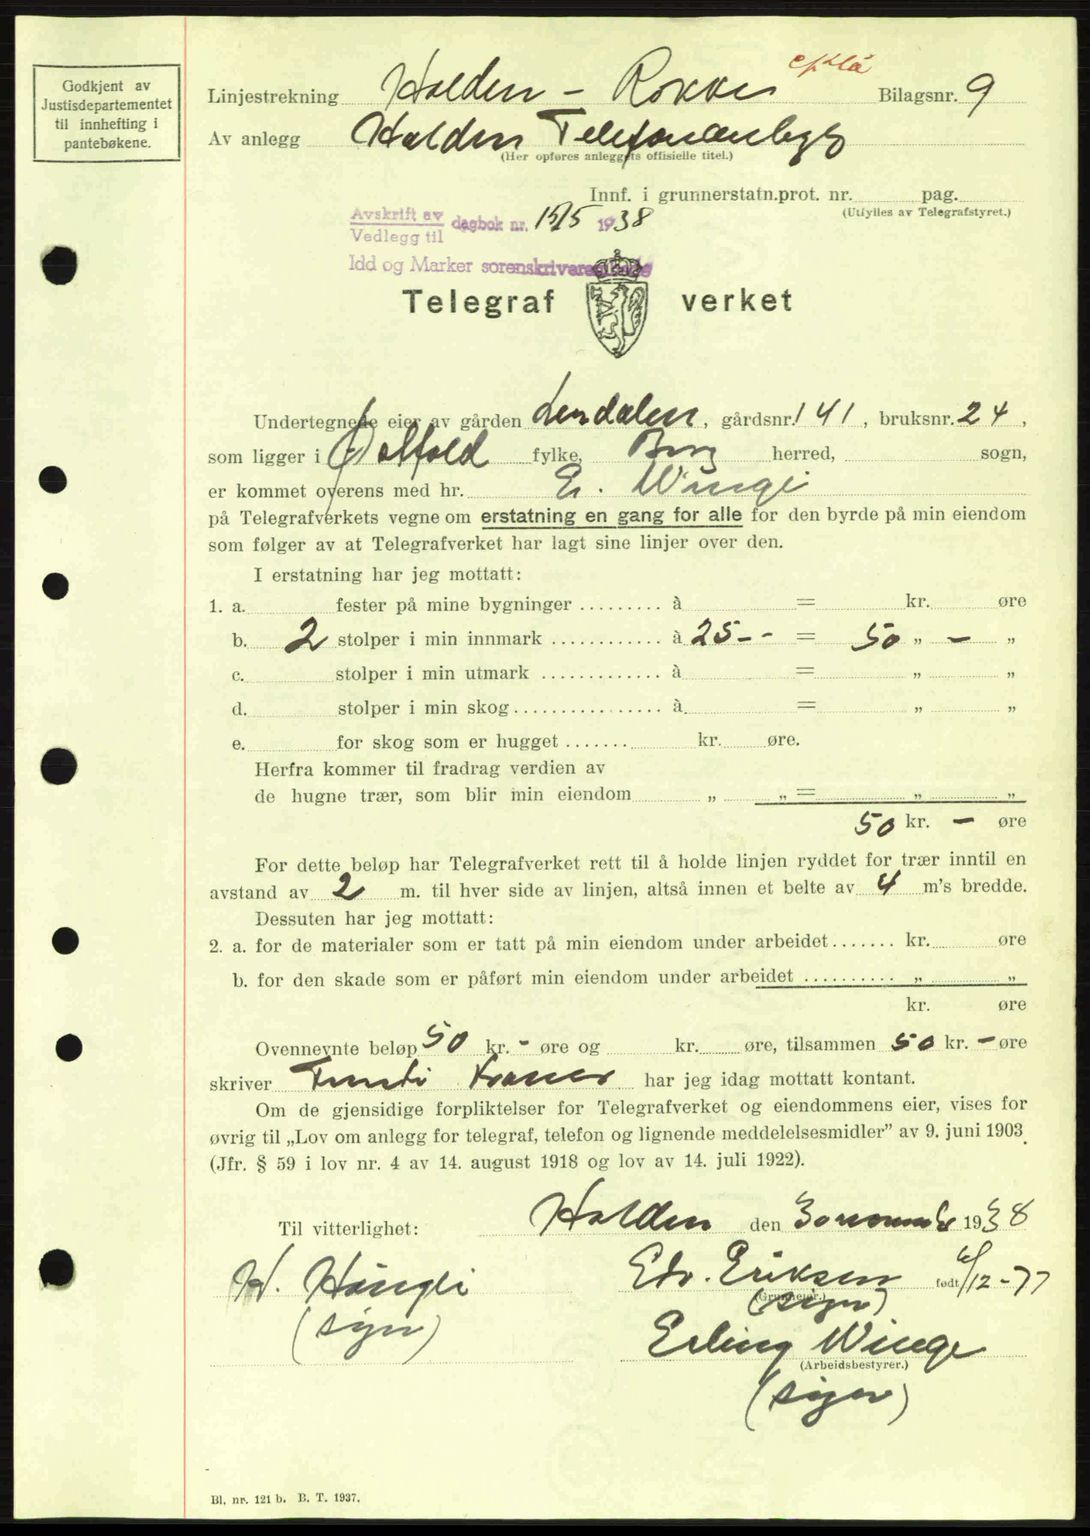 Godkjent av
Justisdepartementet
til innhefting i
pantebøkene.
Linjestrekning Halden - Rokke Bilagsnr. 9
Av anlegg Halden Telefonanlegg
(Her opføres anleggets offisielle titel.)
Innf. i grunnerstatn.prot. nr. pag.
(Utfylles av Telegrafstyret.)
Avskrift av
Vedlegg til dagbok nr. 1938
Idd og Marker sorenskriverembede
Telegraf verket
Undertegnede eier av gården Lendalen, gårdsnr. 141, bruksnr. 24,
som ligger i Østfold fylke, Berg herred, sogn,
er kommet overens med hr. E. Winge
på Telegrafverkets vegne om erstatning en gang for alle for den byrde på min eiendom
som følger av at Telegrafverket har lagt sine linjer over den.
I erstatning har jeg mottatt:
1. a. fester på mine bygninger ......... à = kr. øre
b. 2 stolper i min innmark ............ à 25-- = 50 „ - „
c. stolper i min utmark ............. à = „ „
d. stolper i min skog ................ à = „ „
e. for skog som er hugget ....... kr. øre.
Herfra kommer til fradrag verdien av
de hugne trær, som blir min eiendom „ „ = „ „
50 kr. - øre
For dette beløp har Telegrafverket rett til å holde linjen ryddet for trær inntil en
avstand av 2 m. til hver side av linjen, altså innen et belte av 4 m's bredde.
Dessuten har jeg mottatt:
2. a. for de materialer som er tatt på min eiendom under arbeidet ....... kr. øre
b. for den skade som er påført min eiendom under arbeidet .......... „ „
kr. øre
Ovennevnte beløp 50 kr. - øre og kr. øre, tilsammen 50 kr. - øre
skriver Femti kroner har jeg idag mottatt kontant.
Om de gjensidige forpliktelser for Telegrafverket og eiendommens eier, vises for
øvrig til „Lov om anlegg for telegraf, telefon og lignende meddelelsesmidler” av 9. juni 1903
(Jfr. § 59 i lov nr. 4 av 14. august 1918 og lov av 14. juli 1922).
Til vitterlighet: Halden den 30 november 1938
Edv. Eriksen født 6/12-77
(Grunneier.)
(sign)
(sign)
Erling Winge
(Arbeidsbestyrer.)
(sign)
Bl. nr. 121 b. B. T. 1937.